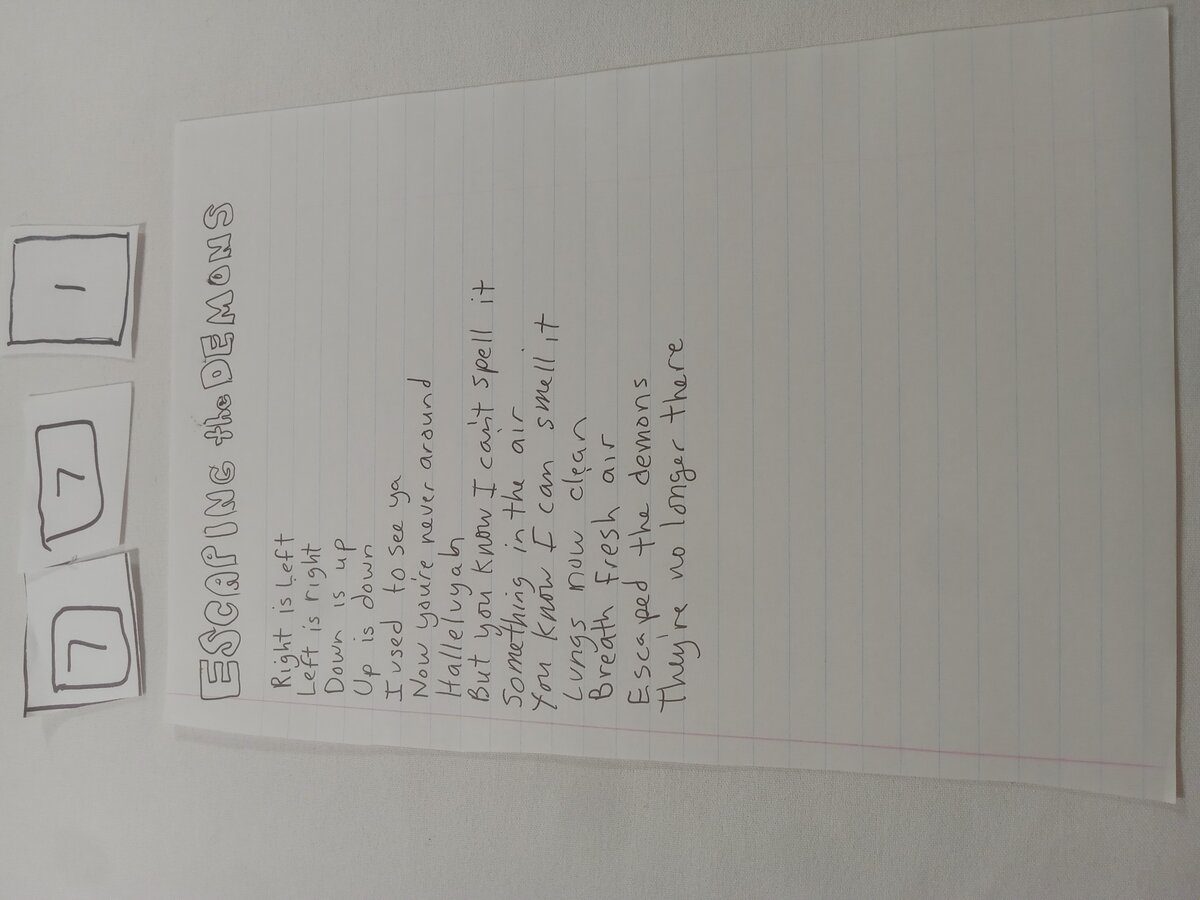 7 7 1
ESCAPING the DEMONS
Right is Left
Left is right
Down is up
Up is down
I used to see ya
Now you're never around
Halleluyah
But you know I can't spell it
Something in the air
You know I can smell it
Lungs now clean
Breath fresh air
Escaped the demons
They're no longer there